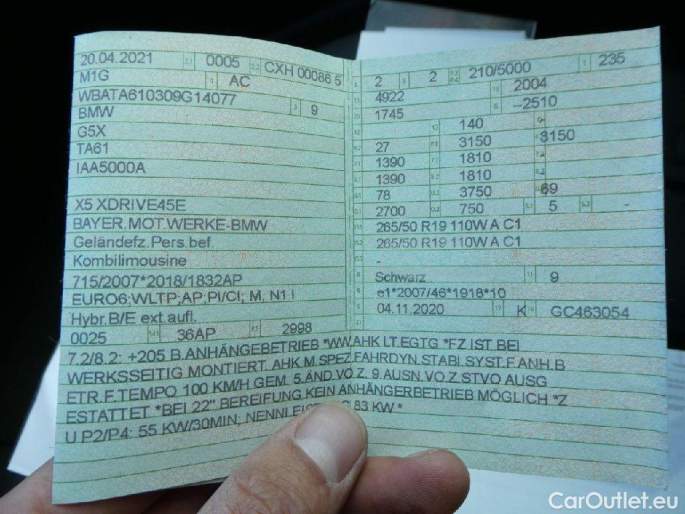 20.04.2021 0005 CXH 00086 5
M1G AC
WBATA610309G14077 9
BMW
G5X
TA61
IAA5000A
X5 XDRIVE45E
BAYER.MOT.WERKE-BMW
Geländefz.Pers.bef.
Kombilimousine
715/2007*2018/1832AP
EURO6;WLTP;AP;PI/CI; M, N1 I
Hybr.B/E ext.aufl.
0025 36AP 2998
2 2 210/5000 235
4922 2004
1745 –2510
140
27 3150 3150
1390 1810
1390 1810
78 3750 69
2700 750 5 -
265/50 R19 110W A C1
265/50 R19 110W A C1
-
Schwarz 9
e1*2007/46*1918*10
04.11.2020 K GC463054
7.2/8.2: +205 B.ANHÄNGEBETRIEB *WW.AHK LT.EGTG *FZ IST BEI
WERKSSEITIG MONTIERT. AHK M.SPEZ.FAHRDYN.STABI.SYST.F.ANH.B
ETR.F.TEMPO 100 KM/H GEM. 5.ÄND.VO.Z. 9.AUSN.VO.Z.STVO AUSG
ESTATTET *BEI 22" BEREIFUNG KEIN ANHÄNGERBETRIEB MÖGLICH *Z
U P2/P4: 55 KW/30MIN; 83 KW *
CarOutlet.eu